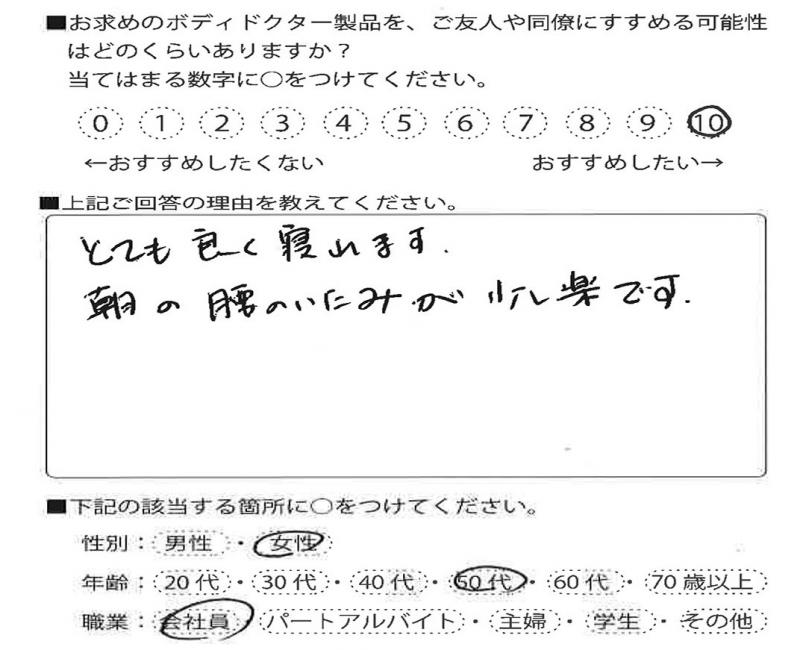 ■お求めのボディドクター製品を、ご友人や同僚にすすめる可能性
はどのくらいありますか？
当てはまる数字に○をつけてください。
0 1 2 3 4 5 6 7 8 9 10
←おすすめしたくない おすすめしたい→
■上記ご回答の理由を教えてください。
とても良く寝れます.
朝の腰のいたみが少し楽です.
■下記の該当する箇所に○をつけてください。
性別：男性・女性
年齢：20代・30代・40代・50代・60代・70歳以上
職業：会社員・パートアルバイト・主婦・学生・その他